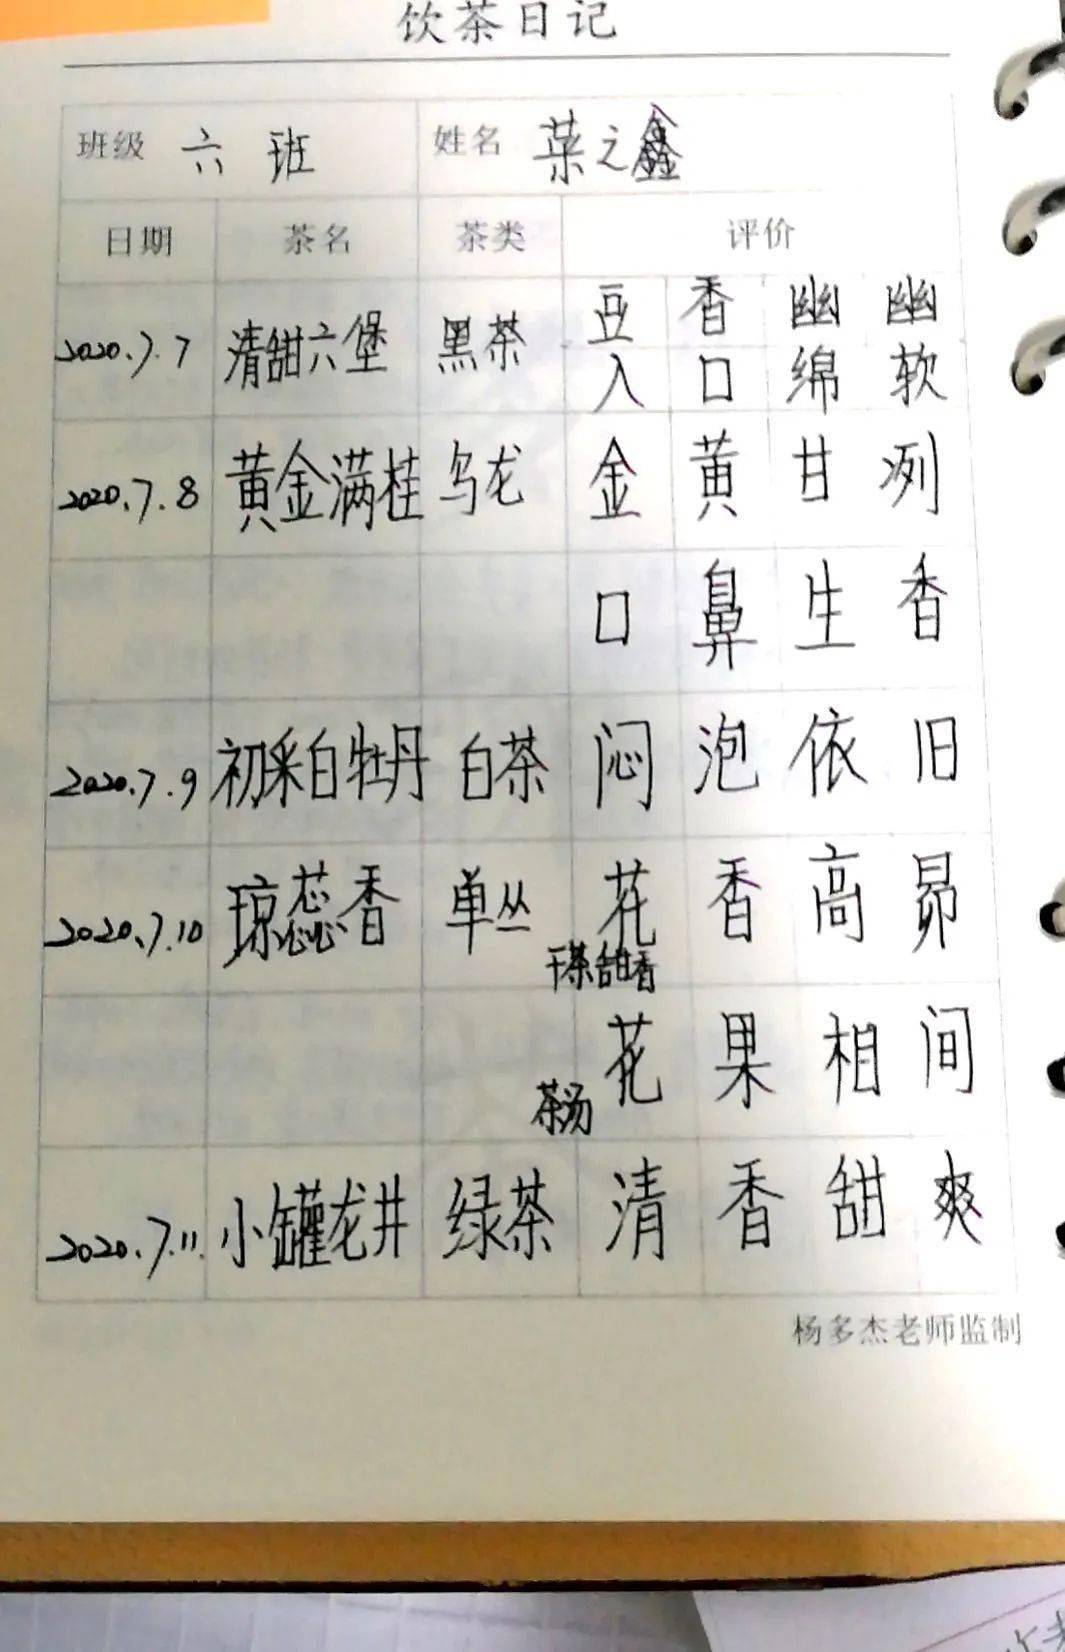 饮茶日记
班级 六班 姓名 菜之鑫
日期 茶名 茶类 评价
2020.7.7 清甜六堡 黑茶 豆香幽幽
入口绵软
2020.7.8 黄金满桂 乌龙 金黄甘冽
口鼻生香
2020.7.9 初采白牡丹 白茶 闷泡依旧
2020.7.10 琼蕊香 单丛 花香高昴
干茶甜香
花果相间
茶汤
2020.7.11. 小罐龙井 绿茶 清香甜爽
杨多杰老师监制